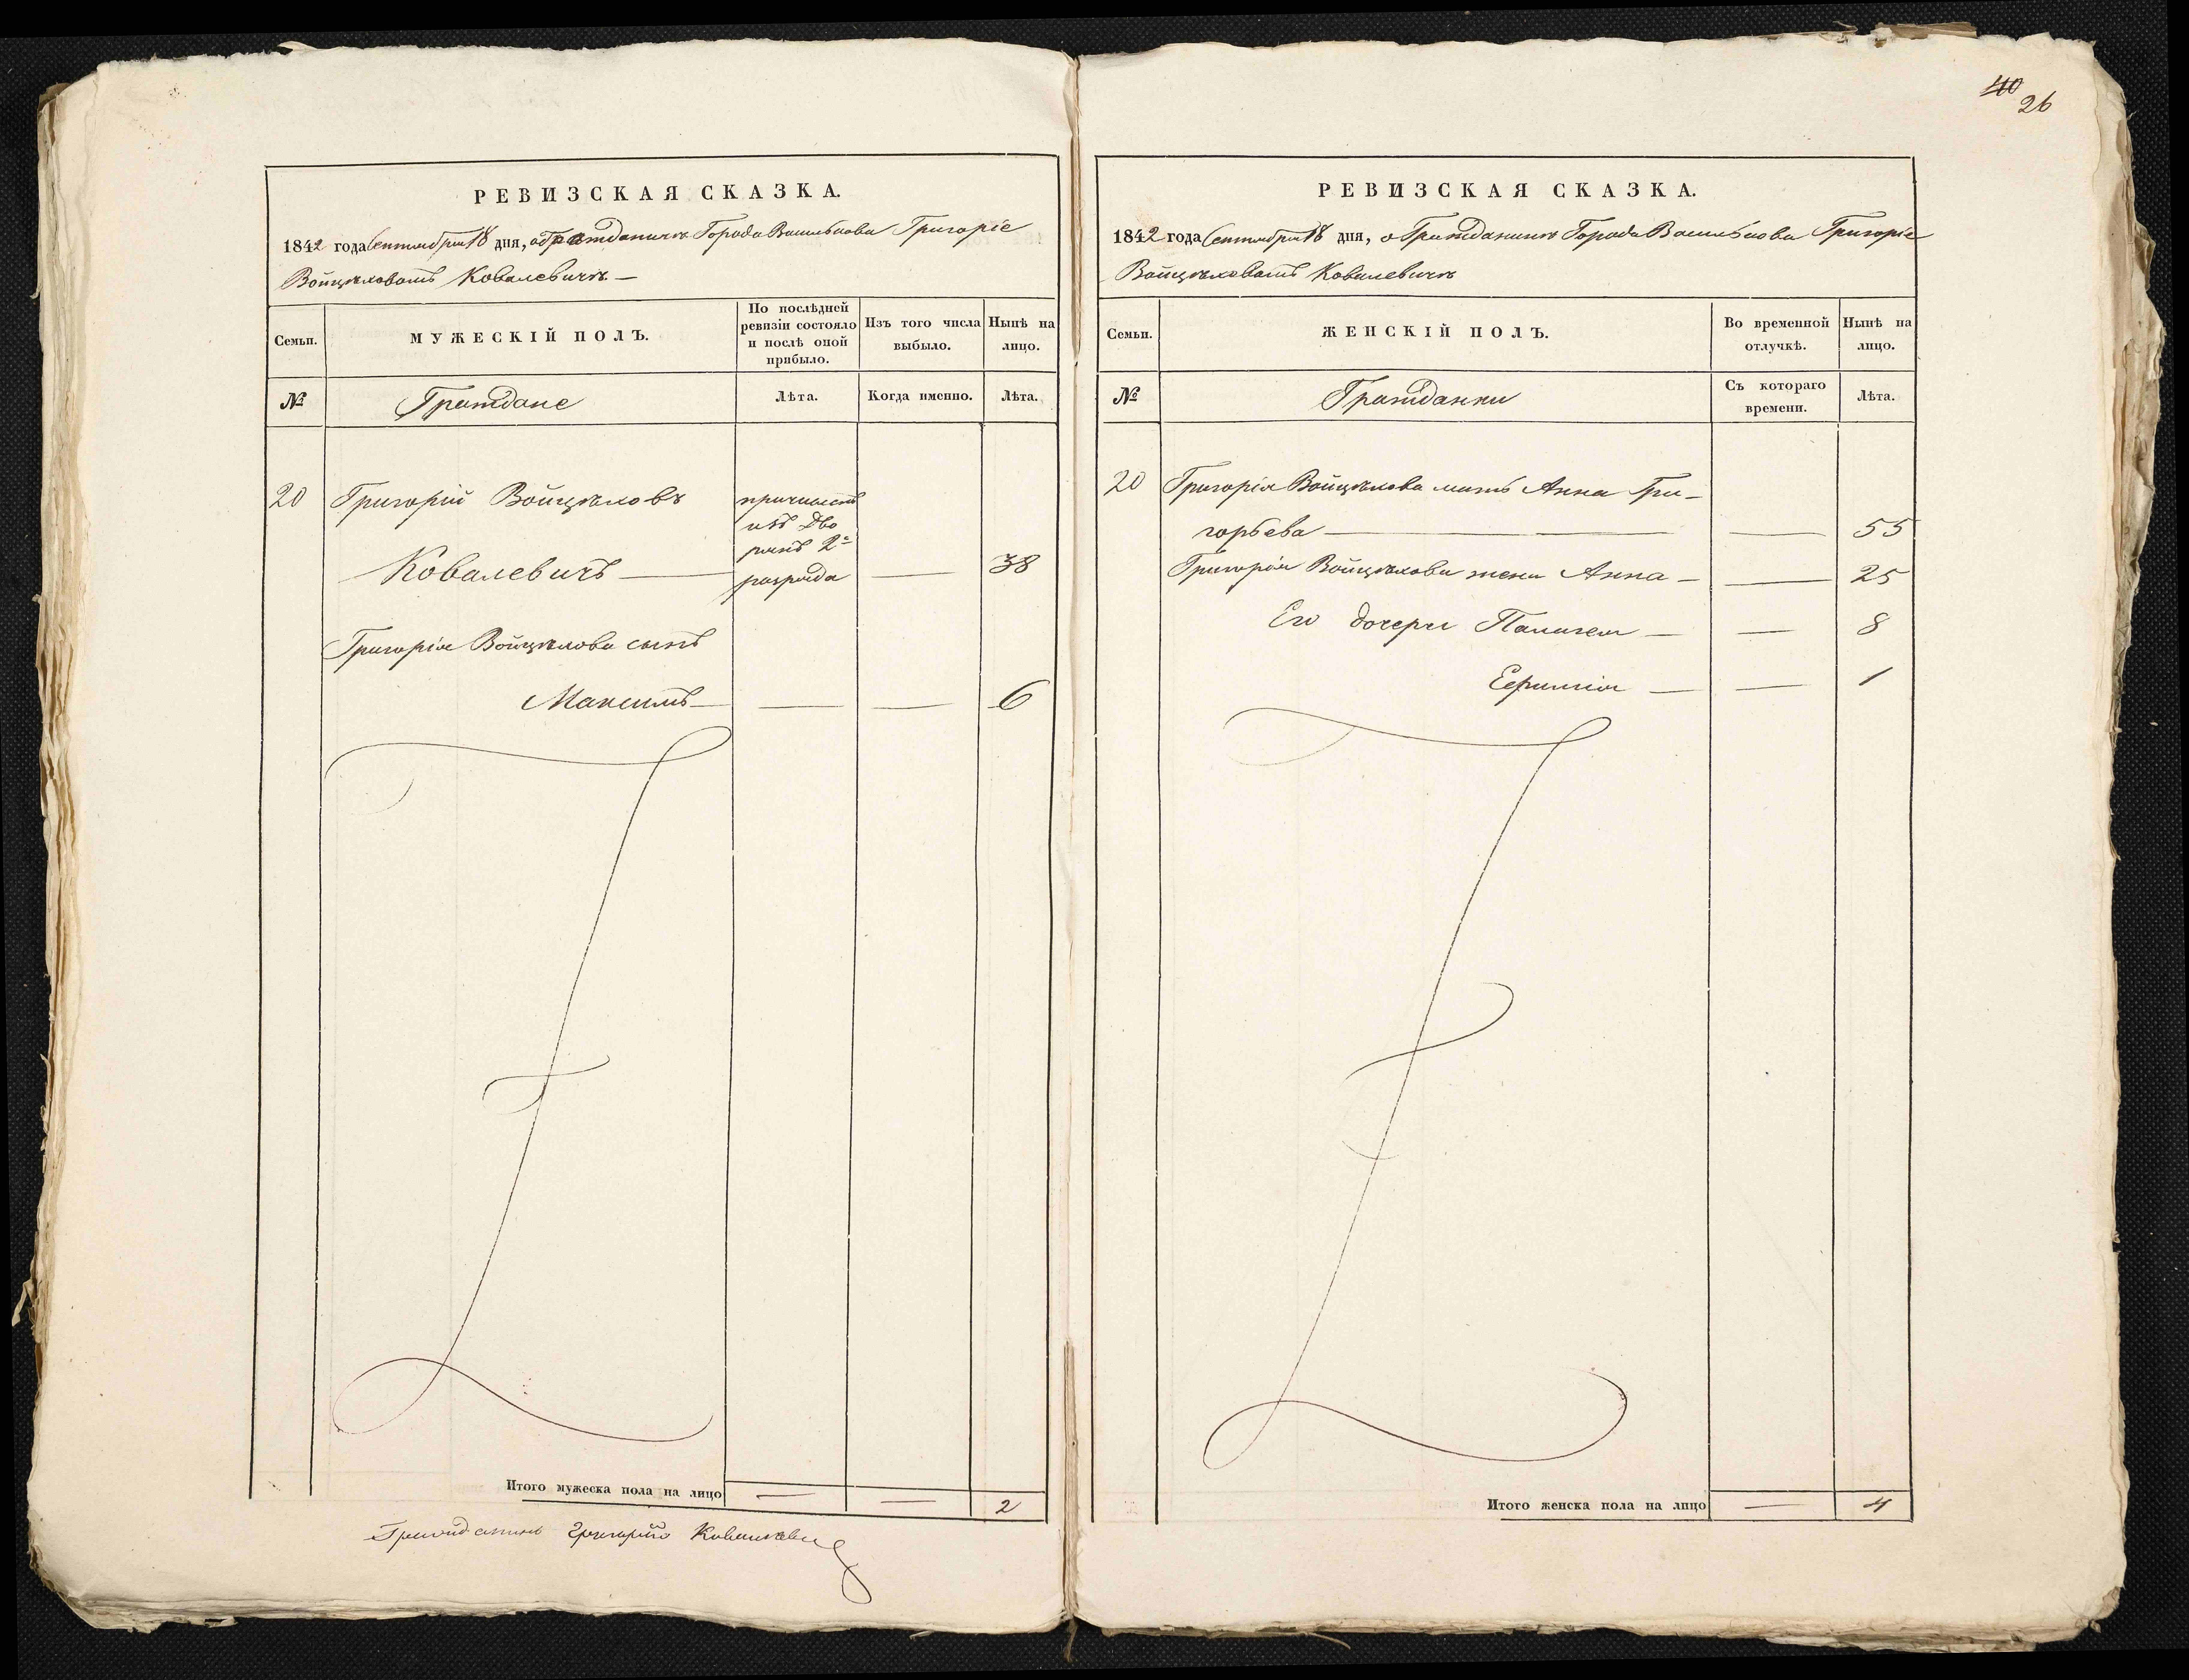 40
26
РЕВИЗСКАЯ СКАЗКА.
1842 года Сентября 18 дня, о Гражданинѣ Города Василькова Григоріе
Войцѣховомъ Ковалевичѣ. —
Семьи.
МУЖЕСКІЙ ПОЛЪ.
По послѣдней ревизіи состояло и послѣ оной прибыло.
Изъ того числа выбыло.
Нынѣ на лицо.
№
Граждане
Лѣта.
Когда именно.
Лѣта.
20 Григорій Войцѣховъ
Ковалевичъ — 38
причисленъ
изъ Дво
рянъ 2º
разряда
Григорія Войцѣхова сынъ
Максимъ — — — 6
Итого мужеска пола на лицо — — 2
Гражданинъ Григорій
РЕВИЗСКАЯ СКАЗКА.
1842 года Сентября 18 дня, о Гражданинѣ Города Василькова Григоріе
Войцѣховомъ Ковалевичѣ
Семьи.
ЖЕНСКІЙ ПОЛЪ.
Во временной отлучкѣ.
Нынѣ на лицо.
№
Гражданки
Съ котораго времени.
Лѣта.
20 Григорія Войцѣхова мать Анна Гри-
горьева — — 55
Григорія Войцѣхова жена Анна — — 25
Его дочери Палагея — — 8
— — 1
Итого женска пола на лицо — 4